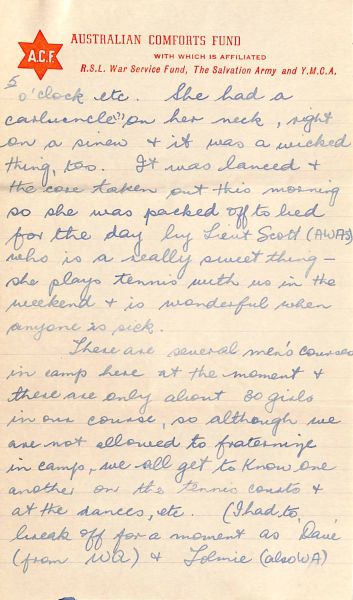 A.C.F.
AUSTRALIAN COMFORTS FUND
WITH WHICH IS AFFILIATED
R.S.L. War Service Fund, The Salvation Army and Y.M.C.A.
5
o'clock etc. She had a
carbuncle(?) on her neck, right
on a sinew & it was a wicked
thing, too. It was lanced &
the core taken out this morning
so she was packed off to bed
for the day by Lieut Scott (AWAS)
who is a really sweet thing –
she plays tennis with us in the
weekend & is wonderful when
anyone is sick.
There are several men's courses
in camp here at the moment &
there are only about 30 girls
in our course, so although we
are not allowed to fraternize
in camp, we all get to know one
another on the tennis courts &
at the dances, etc. (I had to
break off for a moment as 'Dave'
(from WA) & Tolmie (also WA)